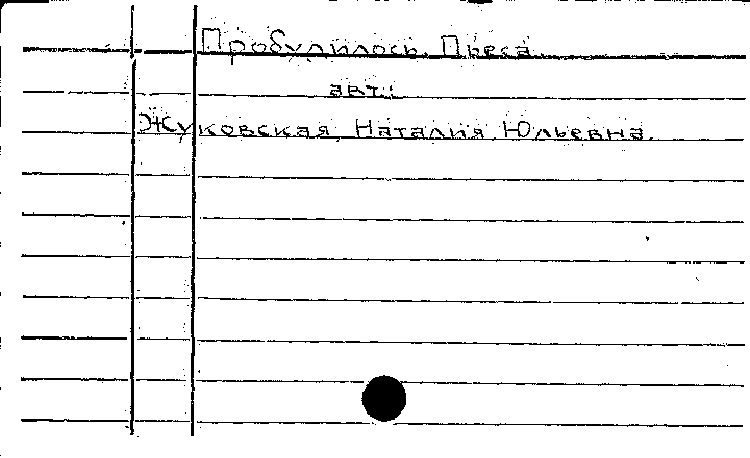 Пробулилось. Пьеса.
авт.:
Жуковская, Наталия Юльевна.